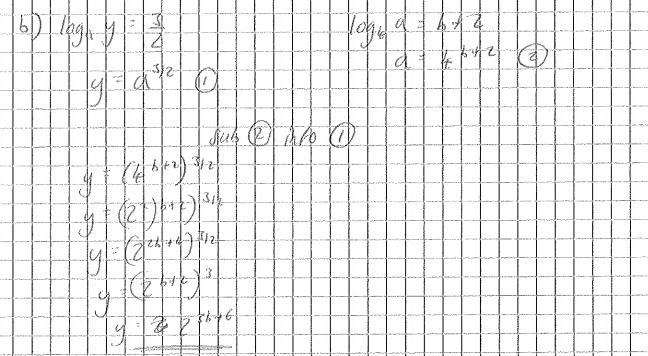 b) logₐ y = 3/2
y = a^3/2 ①
log₄ a = b+2
a = 4^b+2 ②
sub ② into ①
y = (4^b+2)^3/2
y = (2²)^b+2)^3/2
y = (2^2b+4)^3/2
y = (2^b+2)^3
y = 2^3b+6